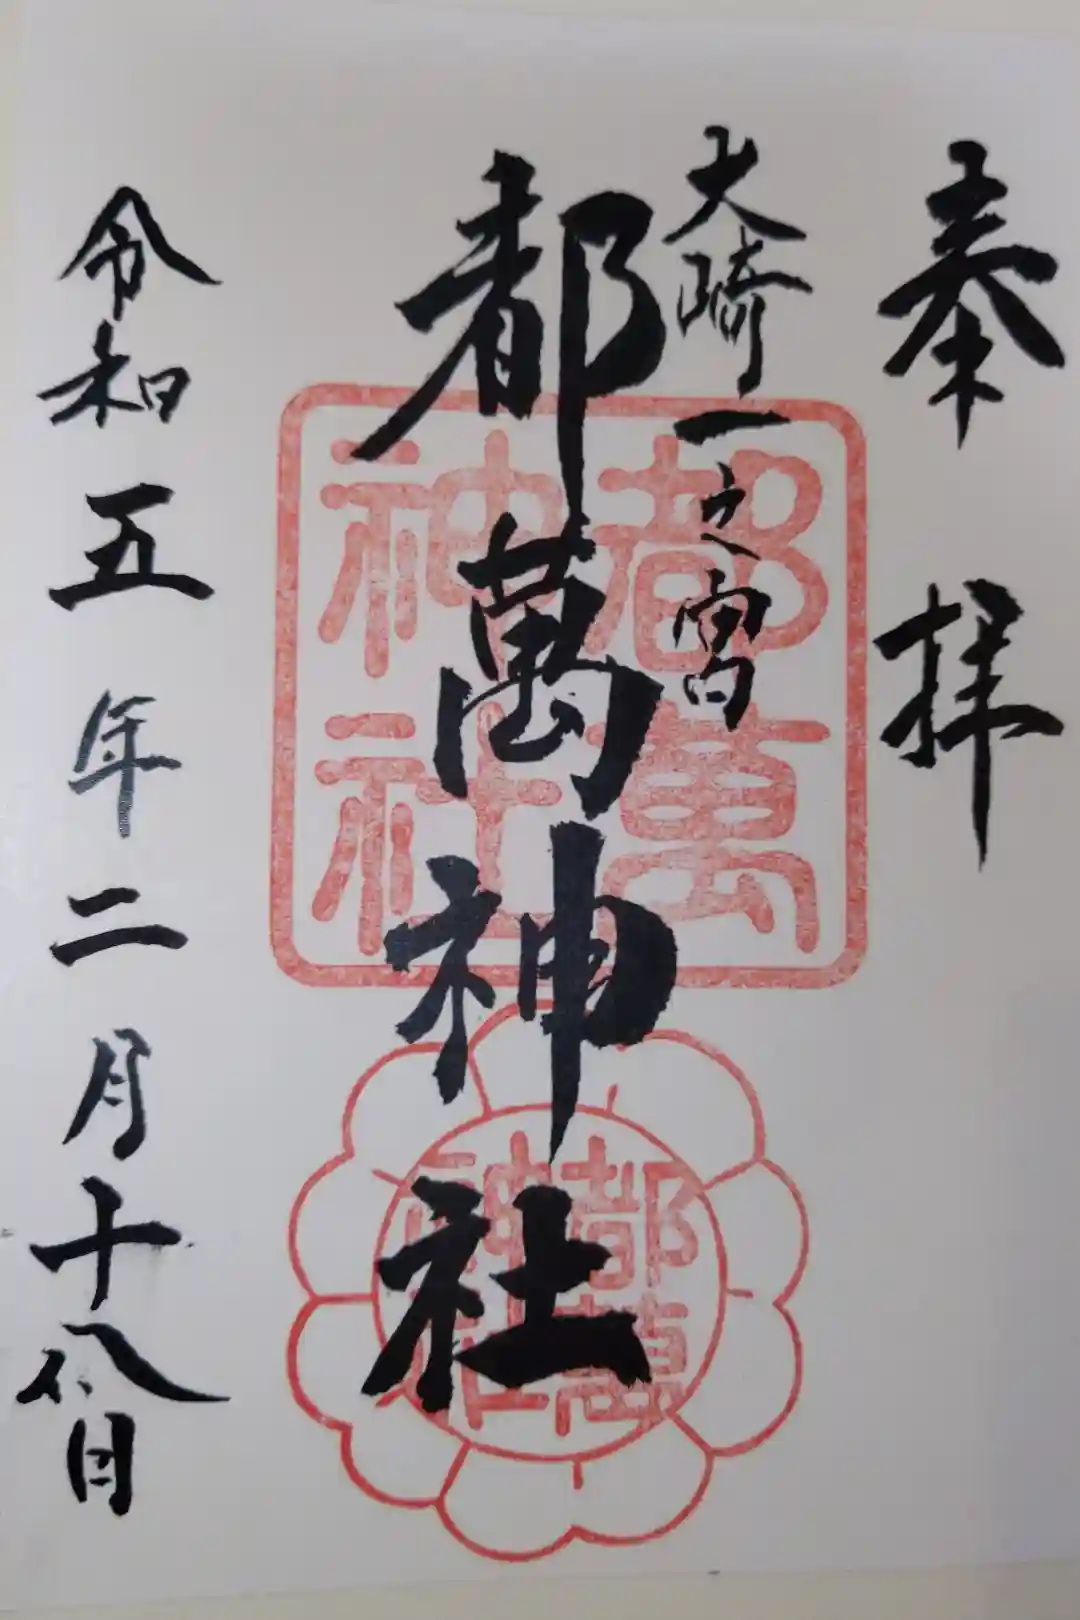 奉拝
大崎一之宮
都萬神社
都萬
神社
都萬
神社
令和五年二月十八日